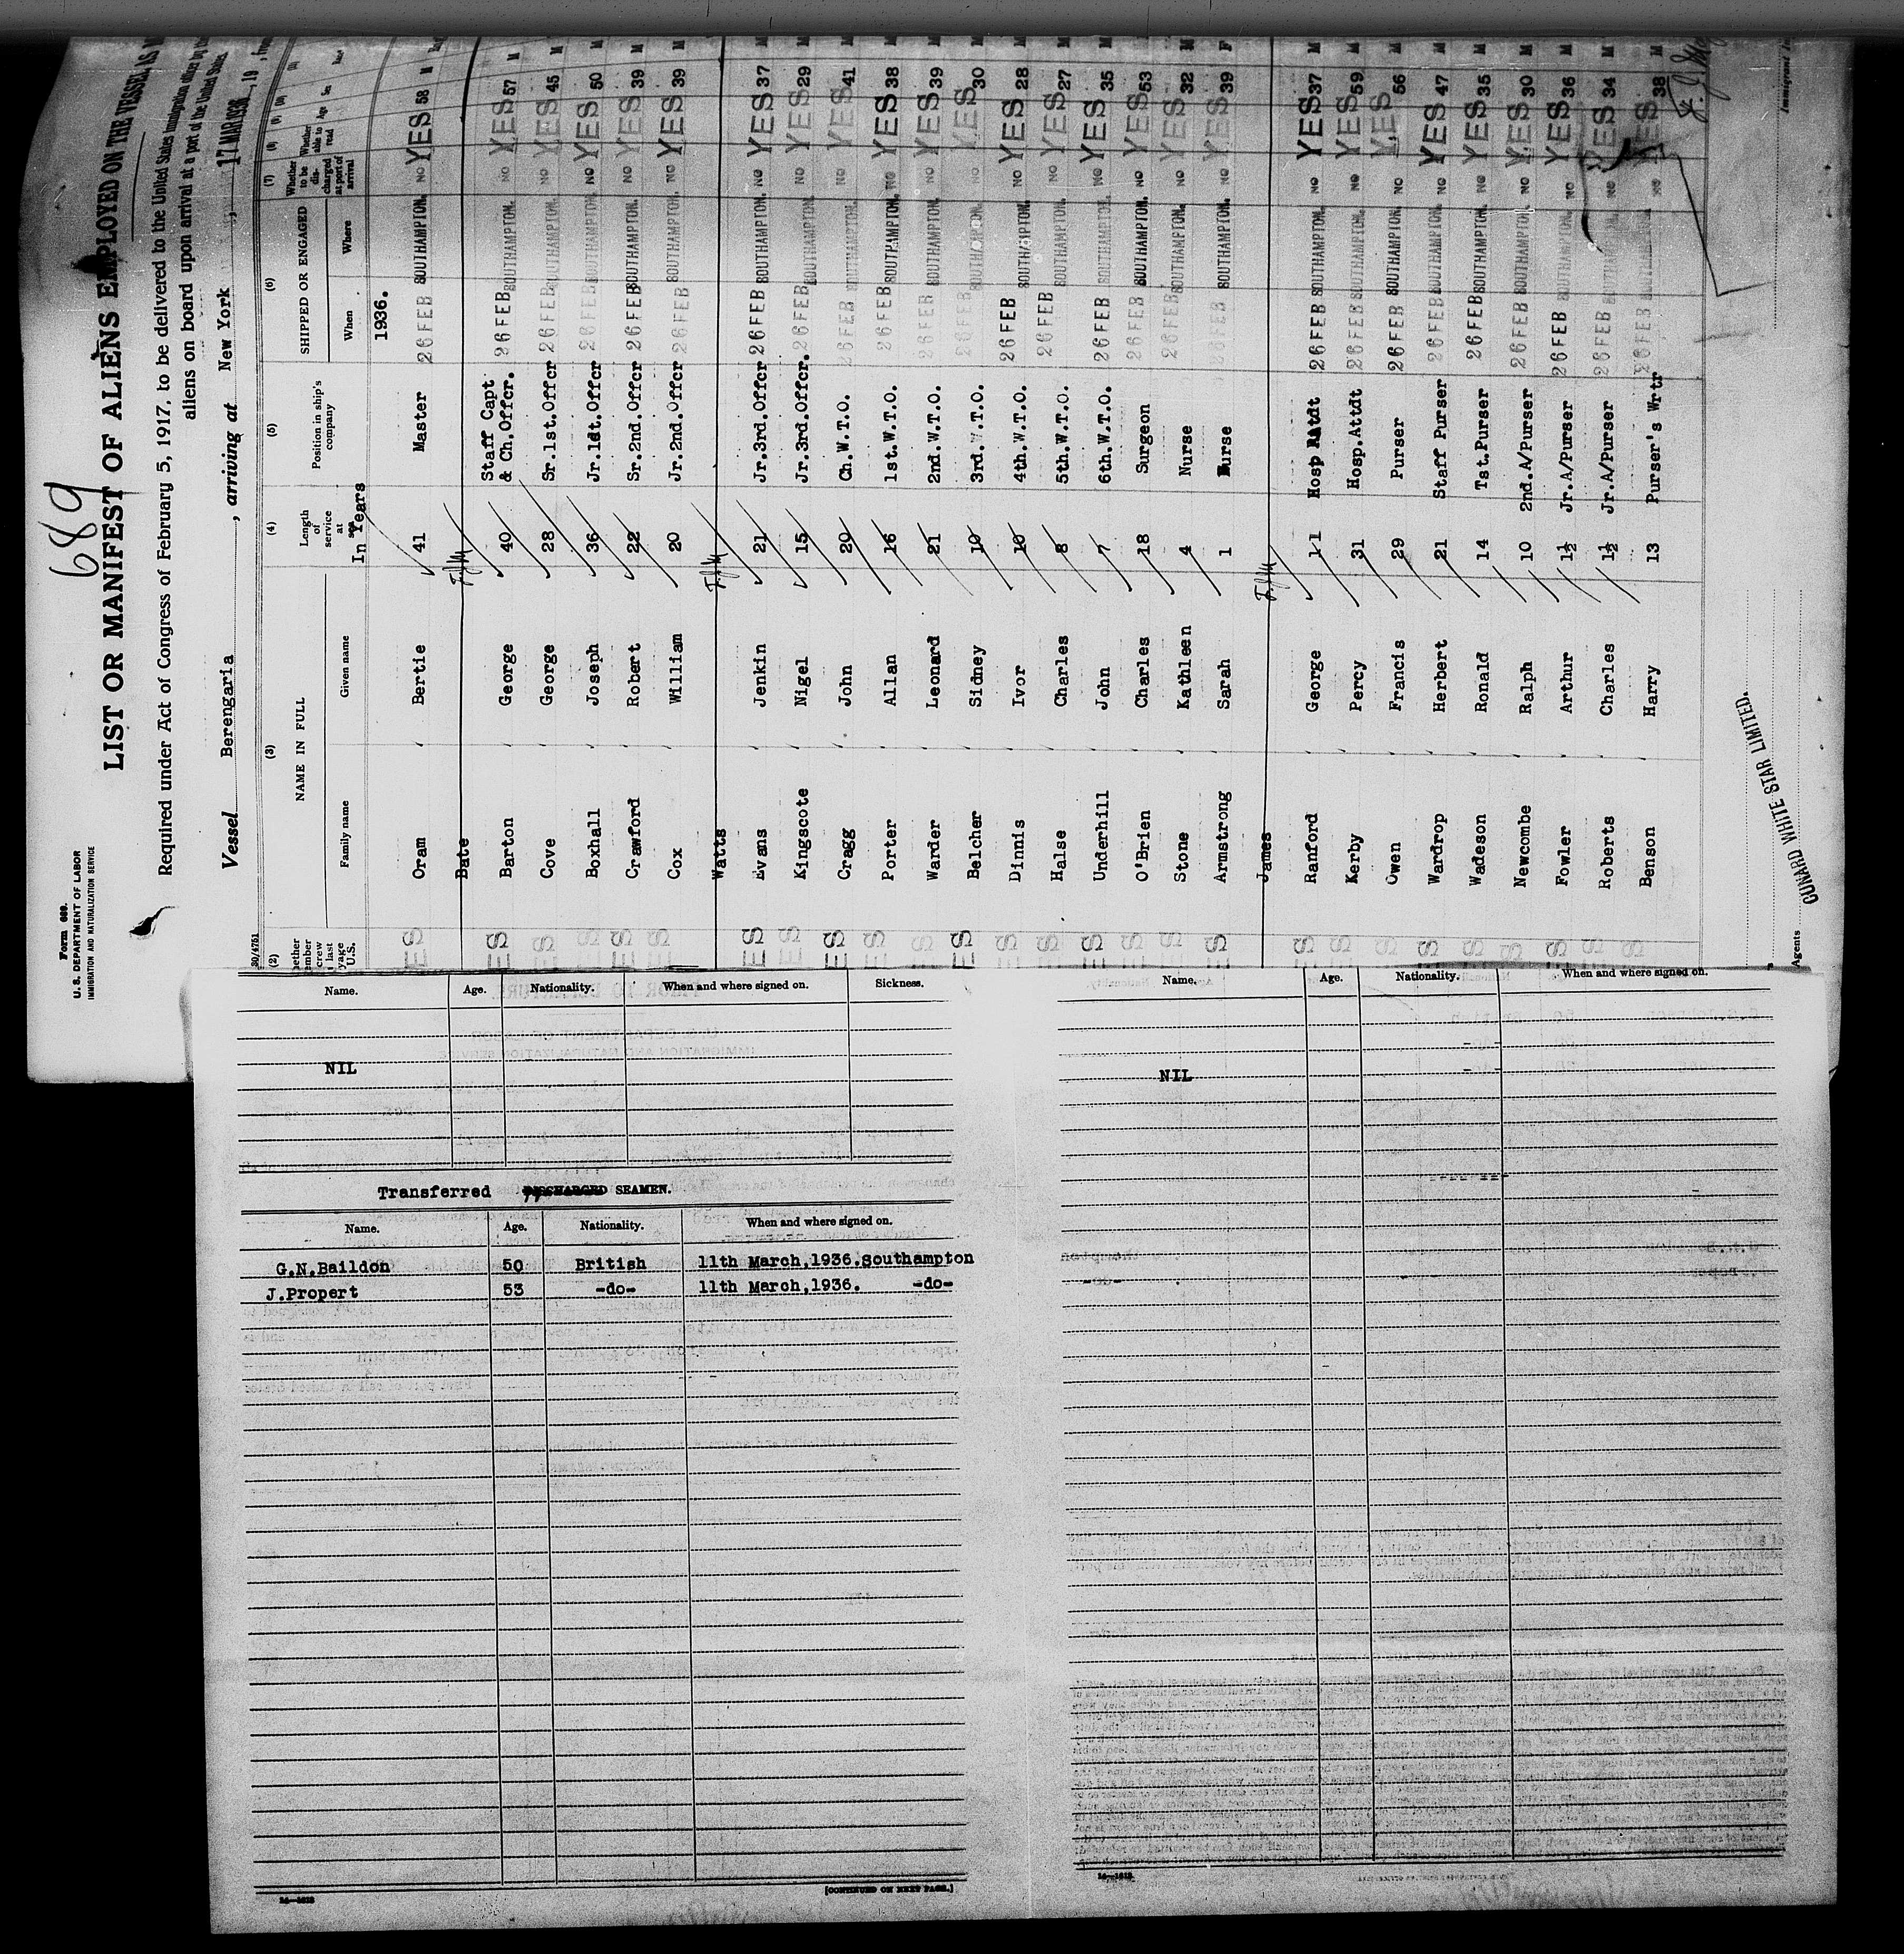 689
Form 689.
U. S. DEPARTMENT OF LABOR
IMMIGRATION AND NATURALIZATION SERVICE
LIST OR MANIFEST OF ALIENS EMPLOYED ON THE VESSEL AS M
Required under Act of Congress of February 5, 1917, to be delivered to the United States immigration officer by the
aliens on board upon arrival at a port of the United States
Vessel Berengaria, arriving at New York, 17 MAR 1936, 19
30/4751
(2) (3) (4) (5) (6) (7) (8) (9) (10)
NAME IN FULL SHIPPED OR ENGAGED
Family name Given name Length of service at sea Position in ship's company When Where Whether to be discharged at port of arrival Whether able to read Age Sex
In Years 1936.
Oram Bertie 41 Master 26 FEB SOUTHAMPTON. NO YES 58 M
Bate
Barton George 40 Staff Capt & Ch.Offcr. 26 FEB SOUTHAMPTON. NO YES 57 M
Cove George 28 Sr.1st.Offcr 26 FEB SOUTHAMPTON. NO YES 45 M
Boxhall Joseph 36 Jr.1st.Offcr 26 FEB SOUTHAMPTON. NO YES 50 M
Crawford Robert 22 Sr.2nd.Offcr 26 FEB SOUTHAMPTON. NO YES 39 M
Cox William 20 Jr.2nd.Offcr 26 FEB SOUTHAMPTON. NO YES 39 M
Watts
Evans Jenkin 21 Jr.3rd.Offcr 26 FEB SOUTHAMPTON. NO YES 37 M
Kingscote Nigel 15 Jr.3rd.Offcr. 26 FEB SOUTHAMPTON. NO YES 29 M
Cragg John 20 Ch.W.T.O. 26 FEB SOUTHAMPTON. NO YES 41 M
Porter Allan 16 1st.W.T.O. 26 FEB SOUTHAMPTON. NO YES 38 M
Warder Leonard 21 2nd.W.T.O. 26 FEB SOUTHAMPTON. NO YES 39 M
Belcher Sidney 10 3rd.W.T.O. 26 FEB SOUTHAMPTON. NO YES 30 M
Dinnis Ivor 10 4th.W.T.O. 26 FEB SOUTHAMPTON. NO YES 28 M
Halse Charles 8 5th.W.T.O. 26 FEB SOUTHAMPTON. NO YES 27 M
Underhill John 7 6th.W.T.O. 26 FEB SOUTHAMPTON. NO YES 35 M
O'Brien Charles 18 Surgeon 26 FEB SOUTHAMPTON. NO YES 53 M
Stone Kathleen 4 Nurse 26 FEB SOUTHAMPTON. NO YES 32 M
Armstrong Sarah 1 Nurse 26 FEB SOUTHAMPTON. NO YES 39 F
James
Ranford George 11 Hosp Attdt 26 FEB SOUTHAMPTON. NO YES 37 M
Kerby Percy 31 Hosp.Attdt 26 FEB SOUTHAMPTON. NO YES 59 M
Owen Francis 29 Purser 26 FEB SOUTHAMPTON. NO YES 56 M
Wardrop Herbert 21 Staff Purser 26 FEB SOUTHAMPTON. NO YES 47 M
Wadeson Ronald 14 Tst.Purser 26 FEB SOUTHAMPTON. NO YES 35 M
Newcombe Ralph 10 2nd.A/Purser 26 FEB SOUTHAMPTON. NO YES 30 M
Fowler Arthur 1½ Jr.A/Purser 26 FEB SOUTHAMPTON. NO YES 36 M
Roberts Charles 1½ Jr.A/Purser 26 FEB SOUTHAMPTON. NO YES 34 M
Benson Harry 13 Purser's Wrtr 26 FEB SOUTHAMPTON. NO YES 38 M
Agents CUNARD WHITE STAR LIMITED.
Name. Age. Nationality. When and where signed on. Sickness.
NIL
Transferred DISCHARGED SEAMEN.
Name. Age. Nationality. When and where signed on.
G.N.Baildon 50 British 11th March,1936.Southampton
J.Propert 53 -do- 11th March,1936. -do-
14—1613
[CONTINUED ON NEXT PAGE.]
Name. Age. Nationality. When and where signed on.
NIL
14—1613